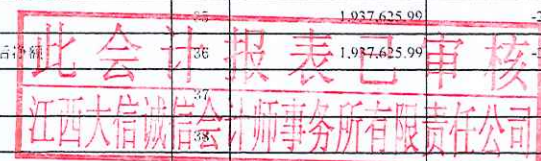 35 1,937,625.99
后净额 36 1,937,625.99
此会计报表已审核
37
江西大信诚信会计师事务所有限责任公司
38